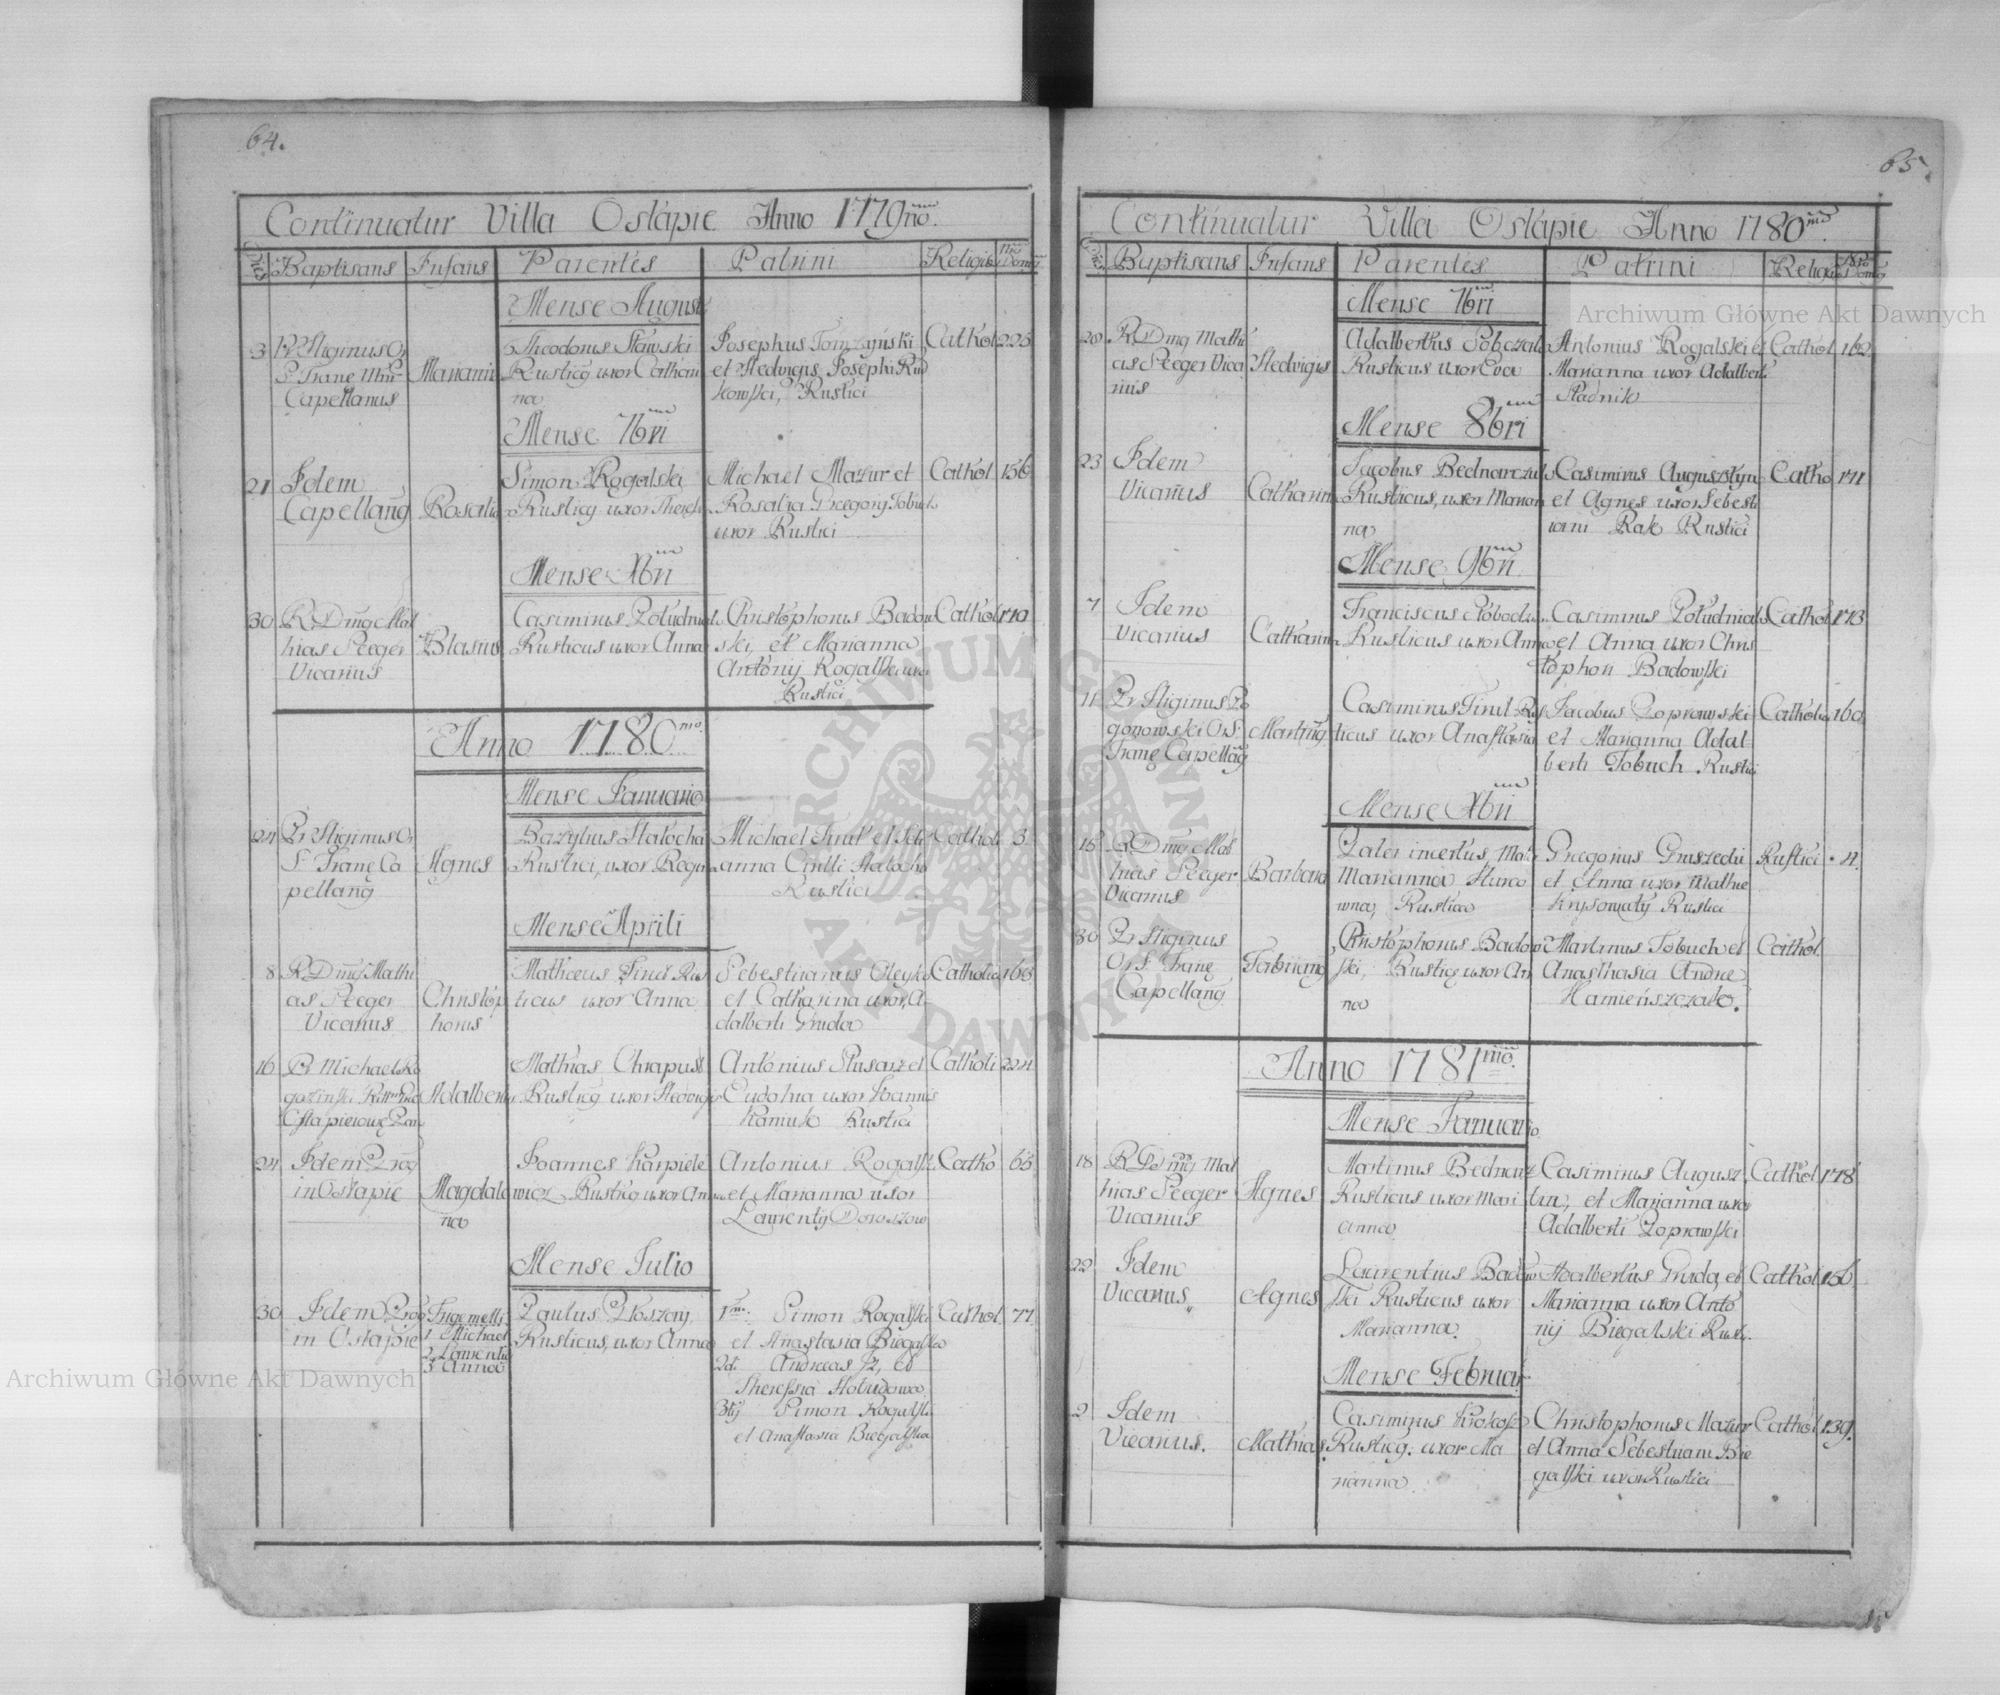 64.
Continuatur Villa Ostapie Anno 1779no.
Dies Baptisans Infans Parentes Patrini Religio Nrus Domus
Mense Augusti
3 Marianna Catholi 225
Theodorus Sławski
Rusticq uxor Cathari
na
Capellanus
Josephus Tomzynski
et Hedvigis Josephi Rud
kowski, Rustici
Mense 7bri
21 Idem
Capellanq Rosalia
Simon Rogalski
Rusticq uxor Theresia
Michael Mazur et
Rosalia Gregorij Tobuch
uxor Rustici
Cathol 156
Mense Xbri
30 R. D mq Mat
hias Seeger
Vicarius
Blasius
Casimirus Południak
Rusticus uxor Anna
Christophorus Badow
ski, et Marianna
Antonij Rogalski uxor
Rustici
Cathol 170
Anno 1780mo.
Mense Januario
24 Pr Higinus Or
S Franc Ca
pellanq
Agnes
Bazylius Hałocha
Rustici, uxor Regina
Michael Firut et
anna Cirilli Hałocha
Rustici
Catholi 3
Mense Aprili
8 R D mq Mathi
as Seeger
Vicarius
Christop
horus
Mathæus Firut Rus
ticus uxor Anna
Sebestianus Oleyko
et Catharina uxor A
dalberti Gruda
Catholic 163
16 R Michael
Adalbertus
Mathias Chrapust
Rusticq uxor Hedvigis
Antonius Slusarz et
Eudohia uxor Joannis
Haniuk Rustici
Catholi 224
24 Idem
in Ostapie
Magdale
na
Joannes Karpiele
wicz Rusticq uxor Anna
Antonius Rogalski
et Marianna uxor
Laurentij Doroszow
Catho 65
Mense Julio
30 Idem
in Ostapie
Trigemelli
1 Michael
2 Laurentius
3 Anna
Paulus
Rusticus, uxor Anna
1m: Simon Rogalski
et Anastasia Biegalska
2di Andreas et
Theressia
3tij Simon Rogalski
et Anastasia Biegalska
Cathol 77
65.
Continuatur Villa Ostapie Anno 1780mo.
Dies Baptisans Infans Parentes Patrini Religio Nro Domq
Mense 7bri
20 R D mq Mathi
as Seeger Vica
rius
Hedvigis
Adalbertus Sobczak
Rusticus uxor Eva
Antonius Rogalski et
Marianna uxor Adalberti
Stadnik
Cathol 162
Mense 8bri
23 Idem
Vicarius
Catharina
Jacobus Bednarczuk
Rusticus, uxor Marian
na
Casimirus Augusztyn
et Agnes uxor Sebesti
iani Rak Rustici
Catho 171
Mense 9bri
7 Idem
Vicarius
Catharina
Franciscus Słoboda
Rusticus uxor Anna
Casimirus Południak
et Anna uxor Chris
tophori Badowski
Cathol 173
11 Pr Higinus Po
gonowski O S
Franc Capellanq
Martinq
Casimirus Firut Rus
ticus uxor Anastasia
Jacobus Zoprowski
et Marianna Adal
berti Tobuch Rustici
Catholic 160
Mense Xbri
16 R D mq Mat
hias Seeger
Vicarius
Barbara
Pater incertus, Mater
Marianna Hurco
wna, Rustica
Gregorius Gruszecki
et Anna uxor Mathie
Krysowaty Rustici
Rustici 4
30 Pr Higinus
O. S. Franc
Capellanq
Fabianq
Christophorus Badow
ski, Rusticq uxor An
na
Martinus Tobuch et
Anasthasia Andrie
Kamieńszczak.
Cathol
Anno 1781mo.
Mense Januario
18 R D mq Mat
hias Seeger
Vicarius
Agnes
Martinus Bednarz
Rusticus uxor Mari
anna
Casimirus Augusz
tin, et Marianna uxor
Adalberti Zoprowski
Cathol 178
22 Idem
Vicarius
Agnes
Laurentius Badow
ski Rusticus uxor
Marianna.
Adalbertus Gruda, et
Marianna uxor Anto
nij Biegalski Rust.
Cathol 156
Mense Februar
2 Idem
Vicarius.
Mathias
Casimirus Krokosz
Rusticq. uxor Ma
rianna
Christophorus Mazur
et Anna Sebestiani Bie
galski uxor Rustici
Cathol 139.
Archiwum Główne Akt Dawnych
Archiwum Główne Akt Dawnych
ARCHIWUM GŁÓWNE AKT DAWNYCH